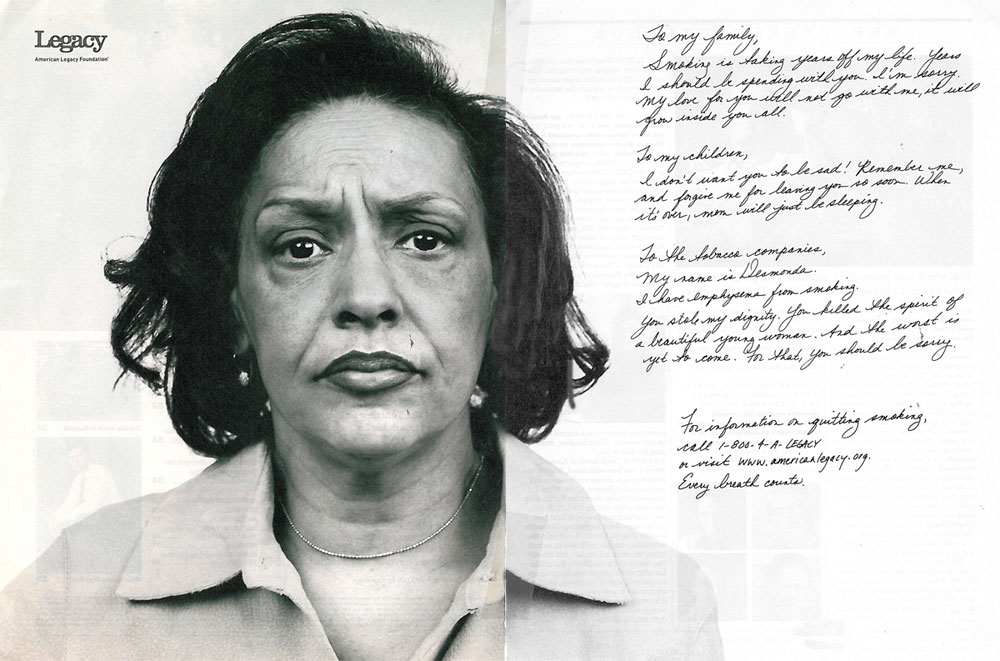 Legacy
American Legacy Foundation
To my family,
Smoking is taking years off my life. Years
I should be spending with you. I'm sorry.
My love for you will not go with me, it will
grow inside you all.
To my children,
I don't want you to be sad! Remember me,
and forgive me for leaving you so soon. When
it's over, mom will just be sleeping.
To the tobacco companies,
My name is Desmonda.
I have emphysema from smoking.
You stole my dignity. You killed the spirit of
a beautiful young woman. And the worst is
yet to come. For that, you should be sorry.
For information on quitting smoking,
call 1-800-4-A-LEGACY
or visit www.americanlegacy.org.
Every breath counts.